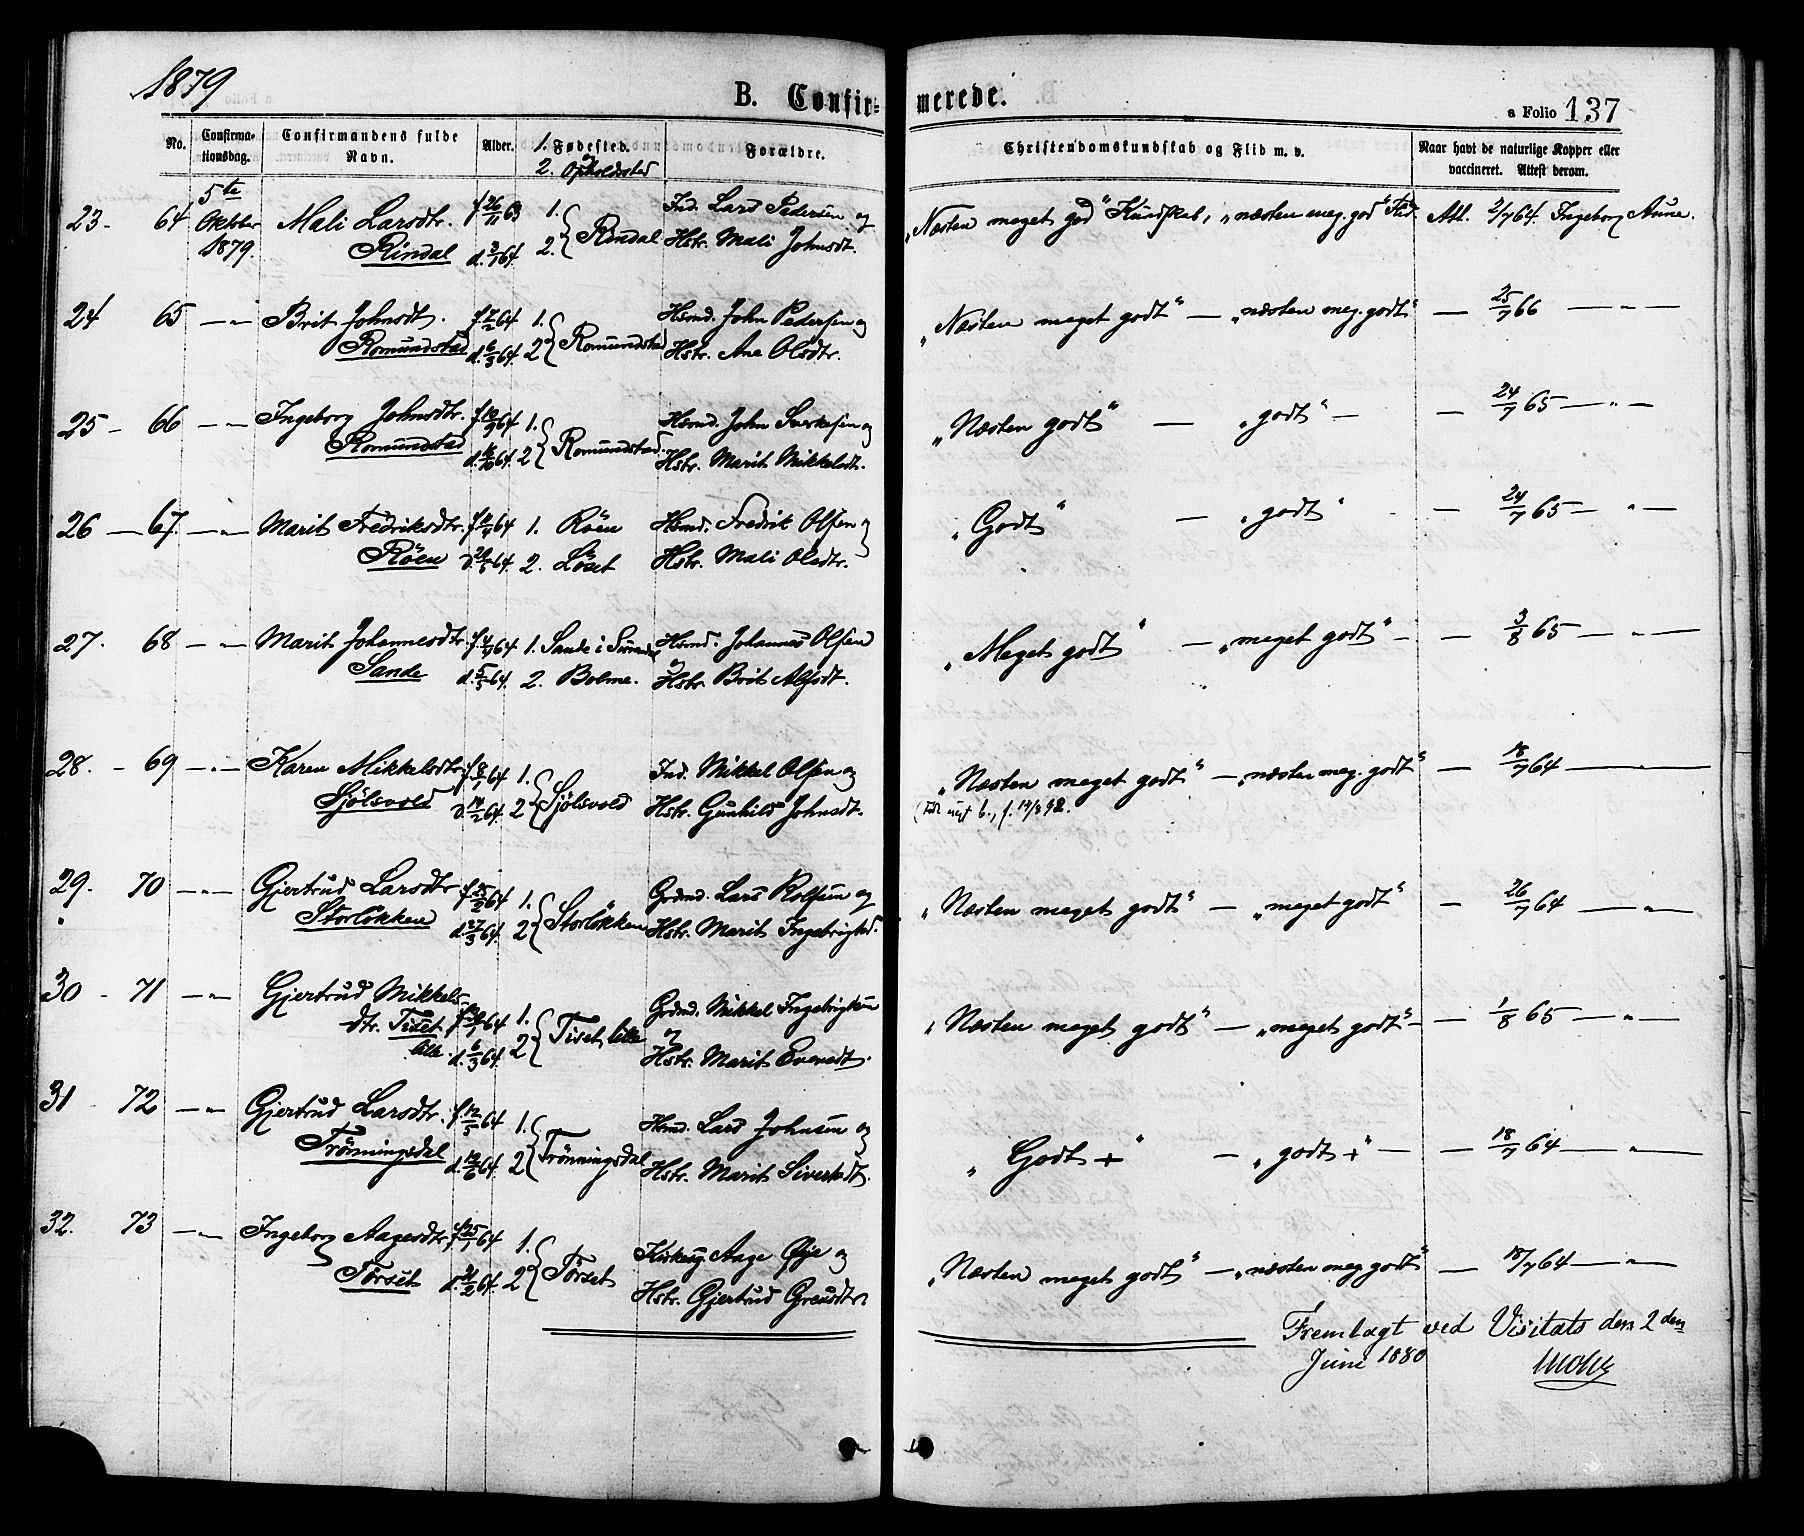 1879
B. Confirmerede.
a Folio 137
No. Confirmationsdag. Confirmandens fulde Navn. Alder. 1. Fødested. 2. Opholdssted Forældre. Christendomskundskab og Flid m. v. Naar havt de naturlige Kopper eller vaccineret. Attest derom.
23 - 64 5te Oktober 1879. Mali Larsdtr. f. 26/11 63 1. Rindal Ind. Lars Pedersen og „Næsten meget god“ Kundskab, „næsten meg. god“ Flid. Att. 2/7 64. Ingeborg Aune.
Rindal d. 3/1 64. 2. Hstr. Mali Johnsdt.
24 65 — „ — Brit Johnsdt. f. 7/2 64 1. Romundstad Hsmd. John Pedersen og „Næsten meget godt“ — „næsten meg. godt“ — 25/7 66 — „ —
Romundstad d. 6/3 64. 2 Hstr. Ane Olsdtr.
25 - 66 — „ — Ingeborg Johnsdtr. f. 10/9 64 1. Romundstad. Hsmd. John Sverkesen og „Næsten godt“ — „godt“ — — 24/7 65 — „ —
Romundstad d. 64. 2 Hstr. Marit Mikkelsdt.
26 — 67. — „ — Marit Fredriksdtr. 64 1. Röen Hsmd. Fredrik Olsen og „Godt“ — „godt“ - — 24/7 65 — „ —
Röen 64. 2. Löset Hstr. Mali Olsdtr.
27. 68 — „ — Marit Johannesdtr. f. 4/4 64 1. Sande i Surendal Hsmd. Johannes Olsen „Meget godt“ — „meget godt“ - — 3/8 65 — „ —
Sande d. 5/5 64. 2. Bolme. og Hstr. Brit Alfsdt.
28. - 69 — „ — Karen Mikkelsdtr. f. 8/1 64 1. Sjölsvold Ind. Mikkel Olsen og „Næsten meget godt“ — „næsten meg. godt“ — 18/7 64 — „ —
Sjölsvold d. 14/2 64. 2 Hstr. Gunhild Johnsdt. f. 19/8 98.
29. 70 — „ — Gjertrud Larsdtr. f. 25/2 64 1. Storlökken Grdmd. Lars Rolfsen og „Næsten meget godt“ — „meget godt“ — 26/7 64 — „ —
Storlökken d. 27/3 64. 2 Hstr. Marit Ingebrigtsd.
30 - 71 — „ — Gjertrud Mikkels-
dtr. Tiset lille. 64 1. Tiset lille Grdmd. Mikkel Ingebrigtsen og „Næsten meget godt“ — „meget godt“ - — 1/8 65 — „ —
d. 6/3 64. 2 Hstr. Marit Evensdt.
31 - 72 — „ — Gjertrud Larsdtr. f. 12/5 64 1. Trönningsdal Hsmd. Lars Johnsen og „Godt +“ — „godt +“ — — 18/7 64 — „ —
Trönningsdal d. 12/6 64. 2 Hstr. Marit Sivertsdt.
32. 73 — „ — Ingeborg Aagesdtr. f. 25/1 64 1. Törset Kirkesg. Aage Øye og „Næsten meget godt“ — „næsten meg. godt“ — 18/7 64 — „ —
Törset d. 21/2 64. 2 Hstr. Gjertrud
Fremlagt ved Visitats den 2den
Juni 1880